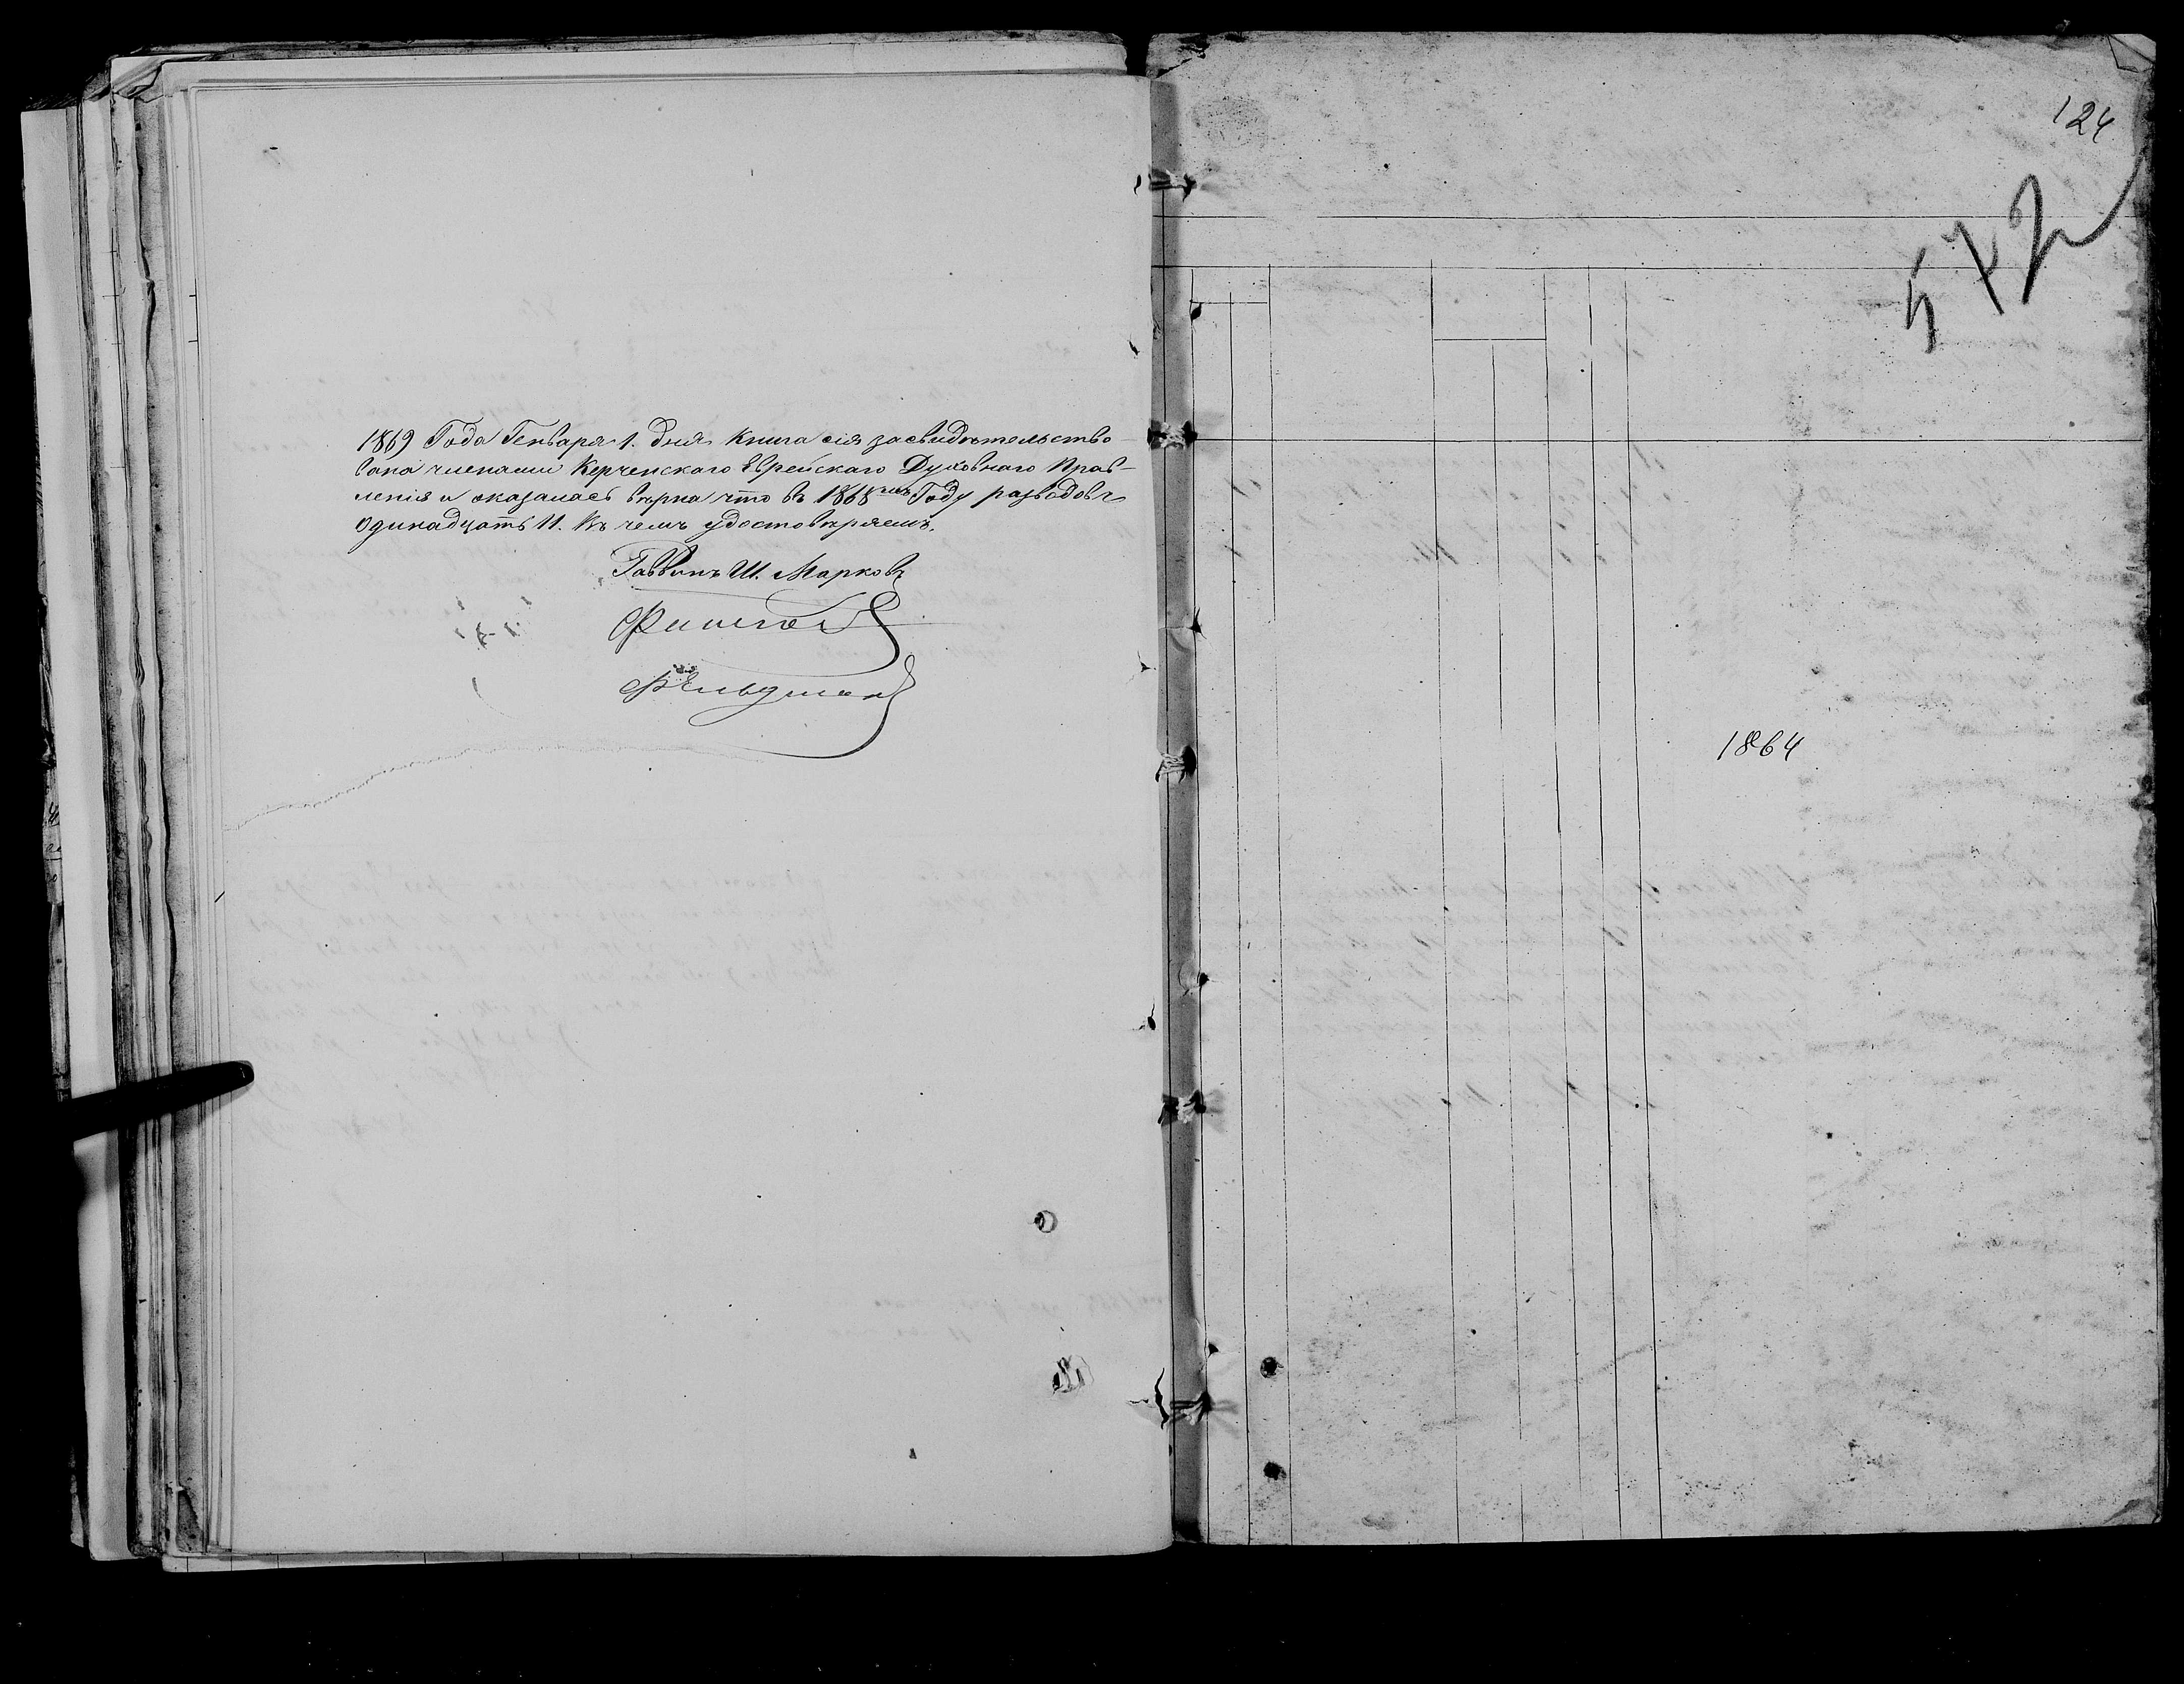 1869 Года Генваря 1. дня книга сія засвидѣтельство-
вана членами Керченскаго Еврейскаго Духовнаго Прав-
ленія и оказалась вѣрна что въ 1868мъ Году разводовъ
одинадцать 11. Въ чемъ удостовѣряемъ.
Раввинъ Ш. Марковъ
Фельдманъ
124
1864